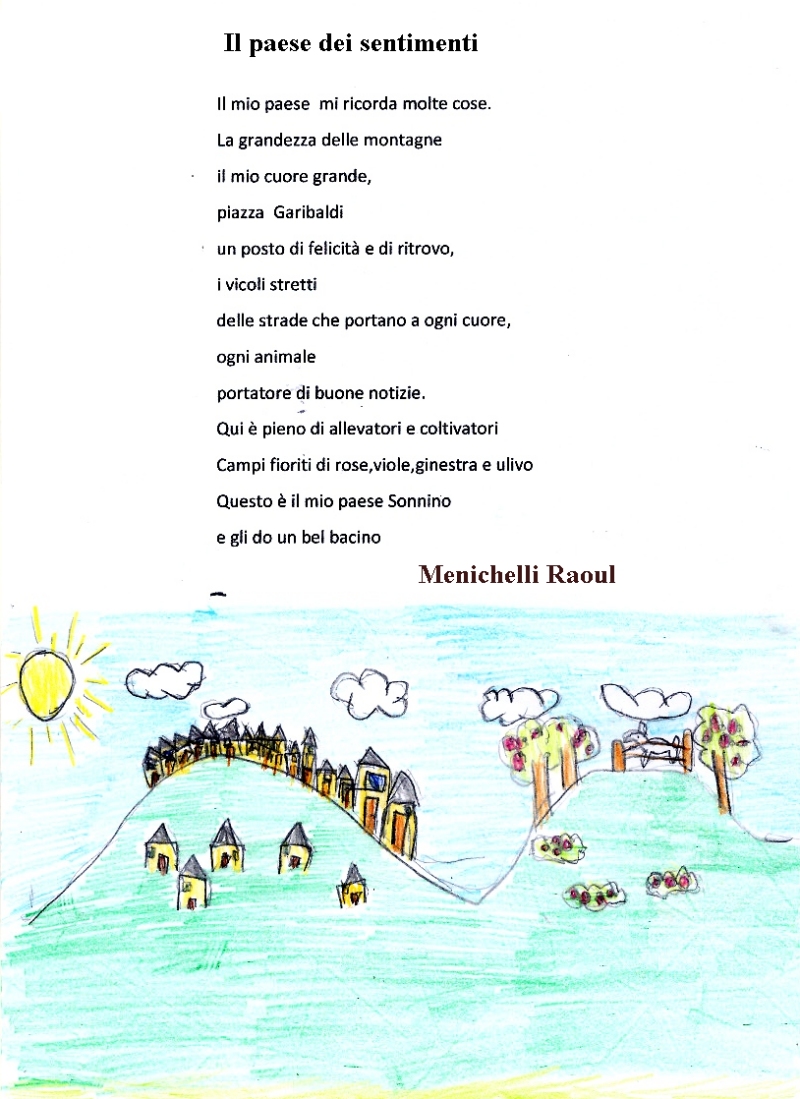 Il paese dei sentimenti
Il mio paese mi ricorda molte cose.
La grandezza delle montagne
il mio cuore grande,
piazza Garibaldi
un posto di felicità e di ritrovo,
i vicoli stretti
delle strade che portano a ogni cuore,
ogni animale
portatore di buone notizie.
Qui è pieno di allevatori e coltivatori
Campi fioriti di rose,viole,ginestra e ulivo
Questo è il mio paese Sonnino
e gli do un bel bacino
Menichelli Raoul